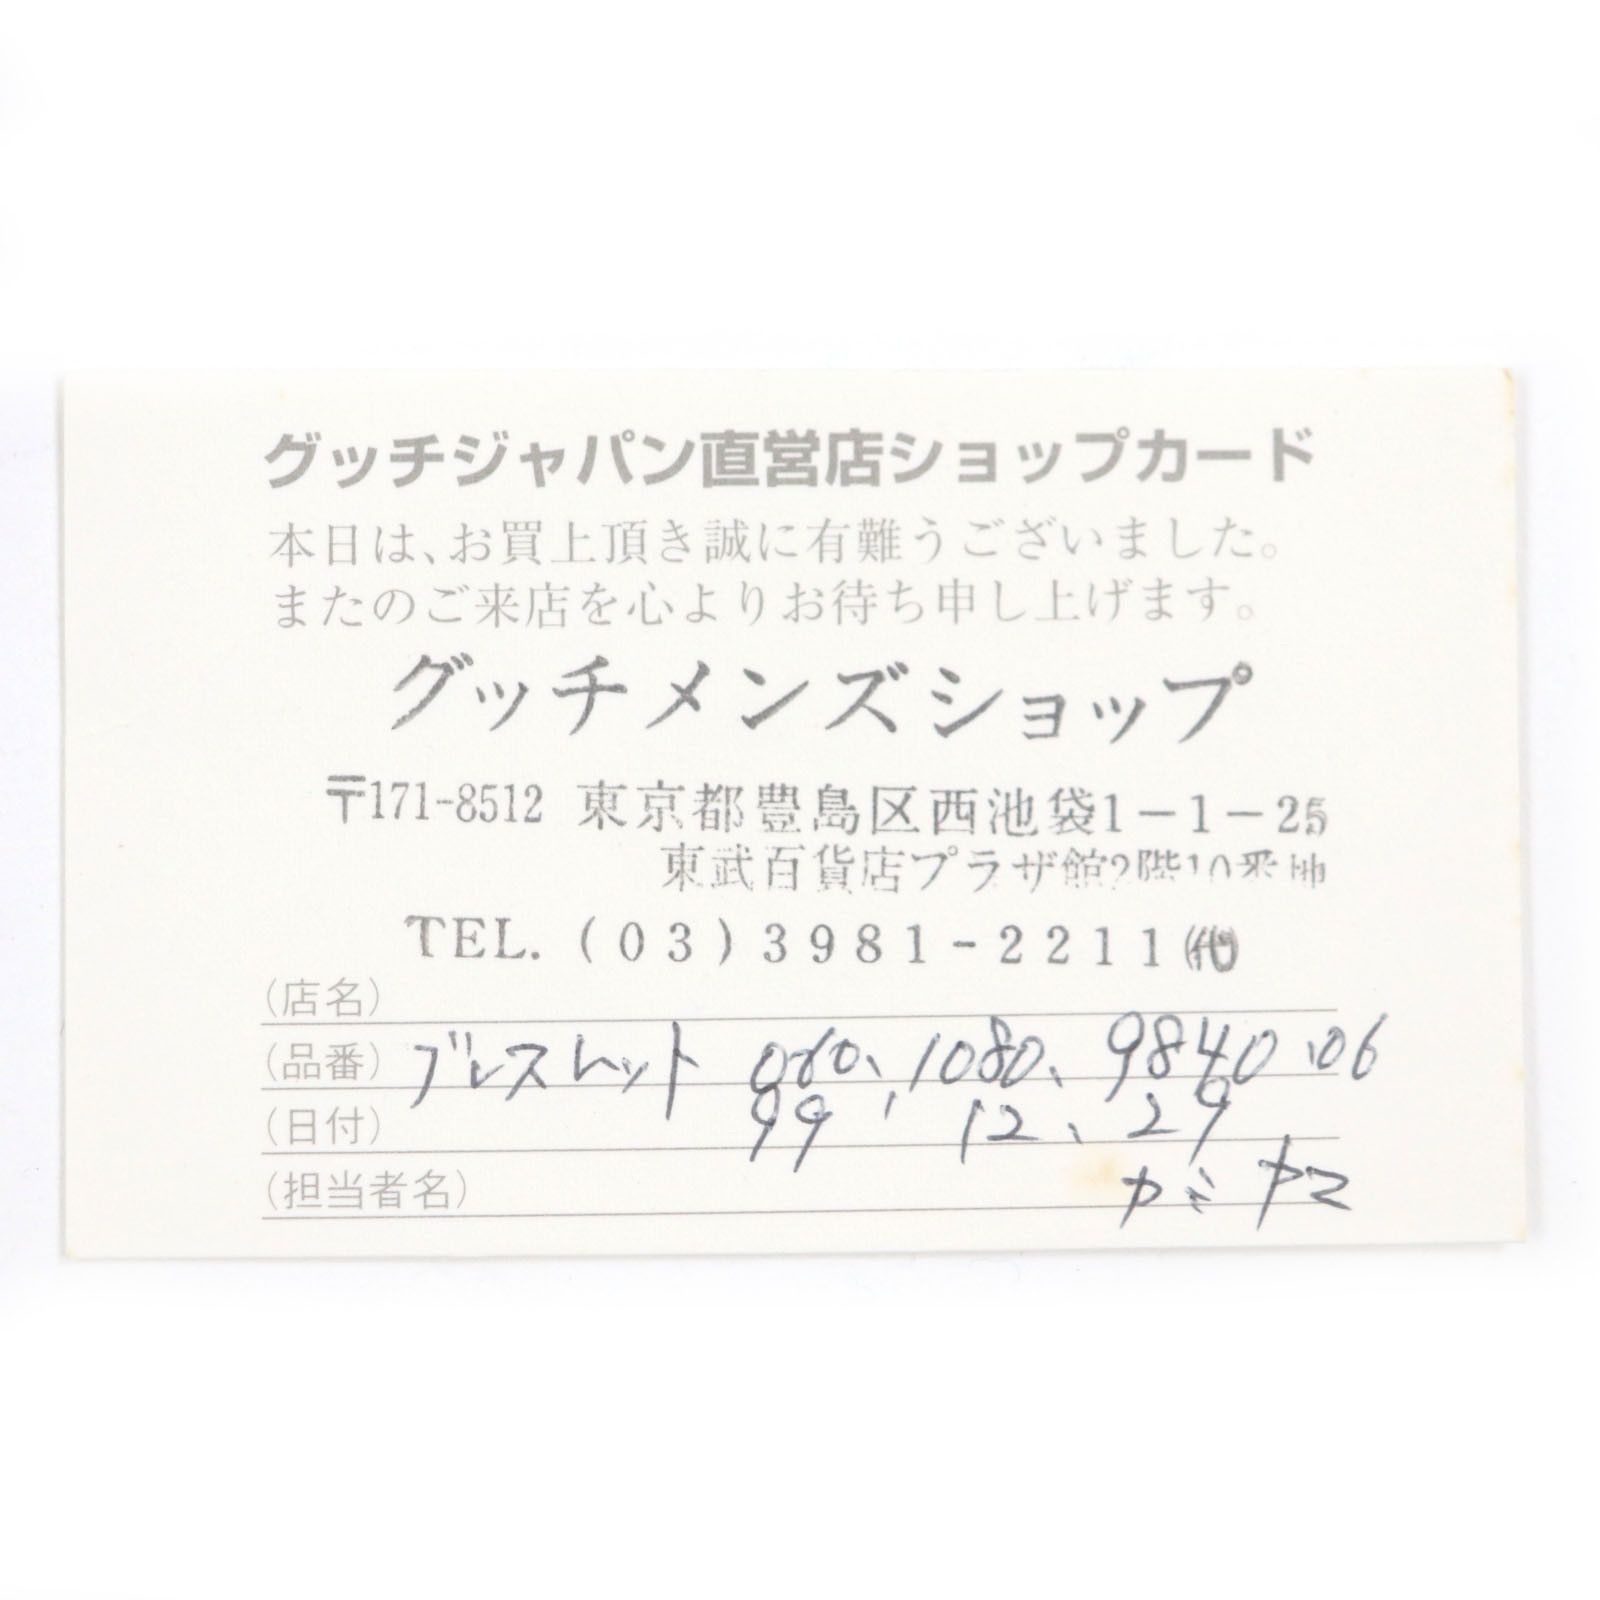 グッチジャパン直営店ショップカード
本日は、お買上頂き誠に有難うございました。
またのご来店を心よりお待ち申し上げます。
グッチメンズショップ
〒171-8512 東京都豊島区西池袋1-1-25
東武百貨店プラザ館2階10番地
TEL. (03)3981-2211㈹
(店名)
(品番) ブレスレット 060、1080、9840、06
(日付) 99, 12、29
(担当者名) カミヤマ